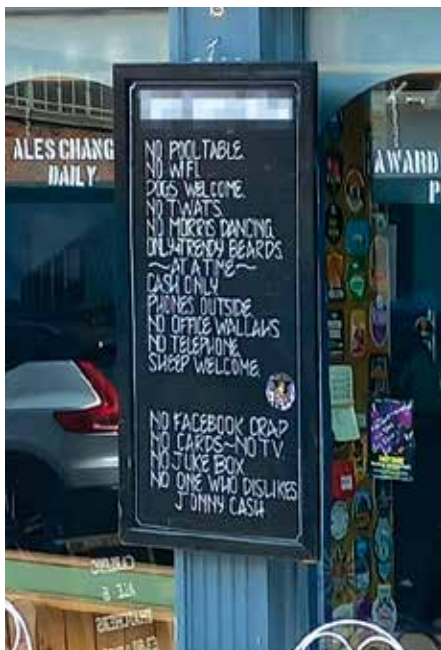 ALES CHANG
DAILY
AWARD
P
NO POOL TABLE
NO WIFI
DOGS WELCOME
NO TWATS
NO MORRIS DANCING
ONLY TRENDY BEARDS
~AT A TIME~
CASH ONLY
PHONES OUTSIDE
NO OFFICE WALLAHS
NO TELEPHONE
SHEEP WELCOME
NO FACEBOOK CRAP
NO CARDS~NO TV
NO JUKE BOX
NO ONE WHO DISLIKES
JONNY CASH